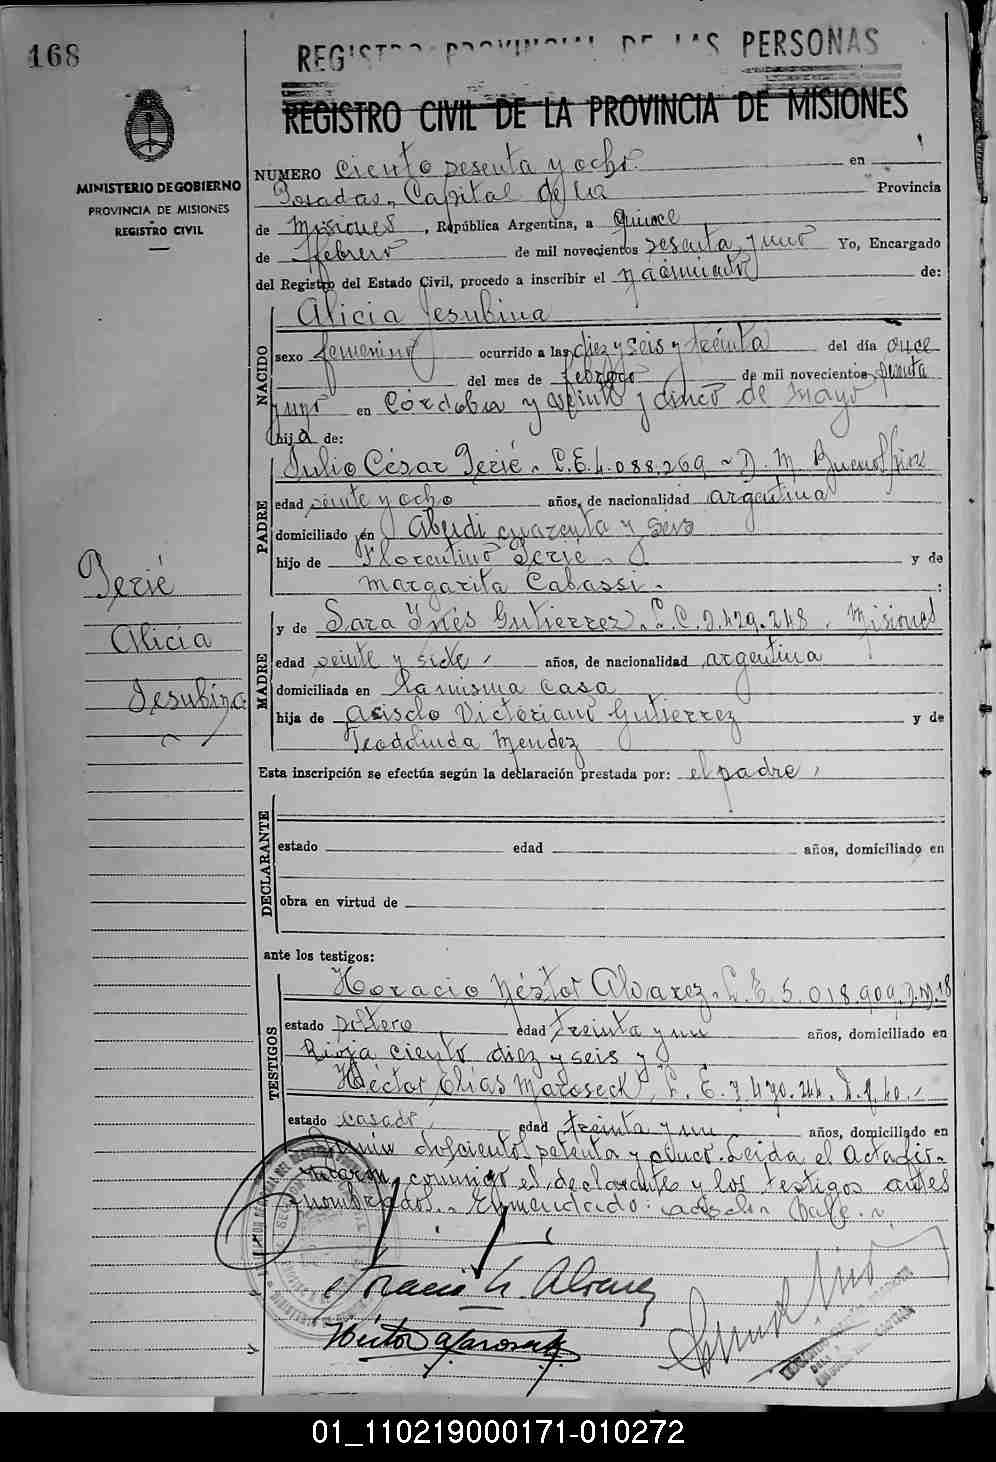 168
REGISTRO PROVINCIAL DE LAS PERSONAS
REGISTRO CIVIL DE LA PROVINCIA DE MISIONES
MINISTERIO DE GOBIERNO
PROVINCIA DE MISIONES
REGISTRO CIVIL
NÚMERO Ciento sesenta y ocho en
Posadas, Capital de la Provincia
de Misiones, República Argentina, a Quince
de febrero de mil novecientos sesenta y uno Yo, Encargado
del Registro del Estado Civil, procedo a inscribir el nacimiento de:
NACIDO
Alicia Jesubina
sexo femenino ocurrido a las diez y seis y treinta del día once
del mes de febrero de mil novecientos sesenta
y uno en Córdoba y veinte y cinco de Mayo
hija de:
PADRE
Julio César Terié. L.E. 4.088.269 - D.M. Buenos Aires
edad veinte y ocho años, de nacionalidad argentina
domiciliado en cuarenta y seis
hijo de Florentino Terié y de
Margarita Cabassi.
MADRE
y de Sara Inés Gutierrez. L.C. 2.429.248. Misiones
edad veinte y siete, años, de nacionalidad argentina
domiciliada en la misma casa
hija de Acisclo Victoriano Gutierrez y de
Teodolinda Mendez
Esta inscripción se efectúa según la declaración prestada por: el padre,
DECLARANTE
estado edad años, domiciliado en
obra en virtud de
ante los testigos:
TESTIGOS
Horacio Néstor Alvarez. L.E. 5.018.909. D.M. 18
estado soltero edad treinta y un años, domiciliado en
Rioja ciento diez y seis y
Héctor Elías Maroseck, L.E. 7.470.244. D.M. 40.
estado casado, edad treinta y un años, domiciliado en
Junín doscientos setenta y cinco. Leida el Acta fir-
maron conmigo el declarante y los testigos antes
nombrados. Enmendado: acisclo. Vale.
Terié
Alicia
Jesubina
Horacio N. Alvarez
Héctor Maroseck
01_110219000171-010272